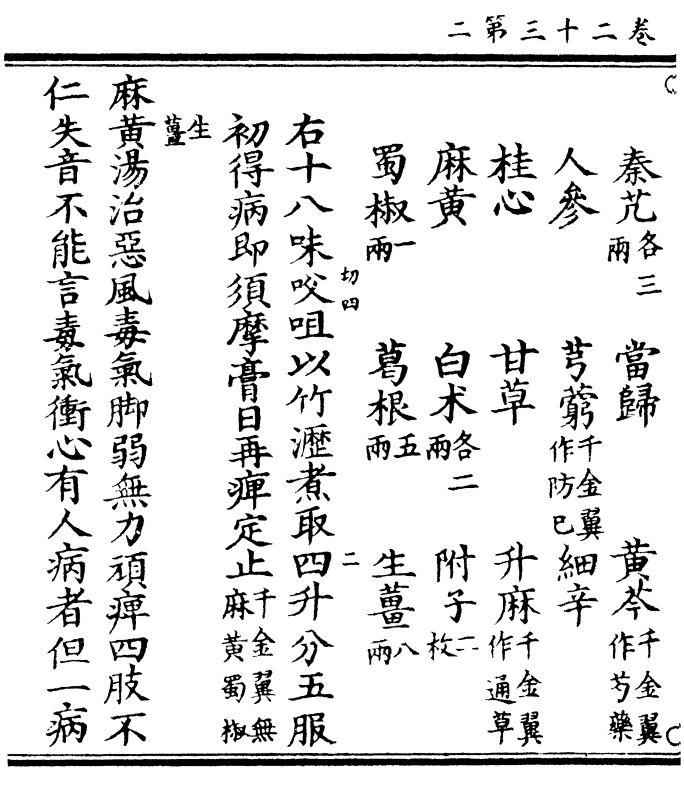 卷二十三第二
秦艽各三兩 當歸 黃芩千金翼作芍藥
人參 芎藭千金翼作防已 細辛
桂心 甘草 升麻千金翼作通草
麻黃 白术各二兩 附子二枚
蜀椒一兩 葛根五兩 生薑八兩
切四 二
右十八味咬咀以竹瀝煮取四升分五服
初得病即須摩膏日再痺定止千金翼無麻黃蜀椒
生薑
麻黃湯治惡風毒氣脚弱無力頑痺四肢不
仁失音不能言毒氣衝心有人病者但一病